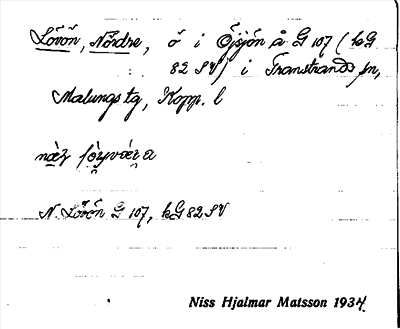 Lövön, Nördre, ö i Öjsjön å G 107 (kG
82 SV) i Transtrands sn,
Malungs tg, Kopp. l
N. Lövön G 107, kG 82 SV
Niss Hjalmar Matsson 1934.